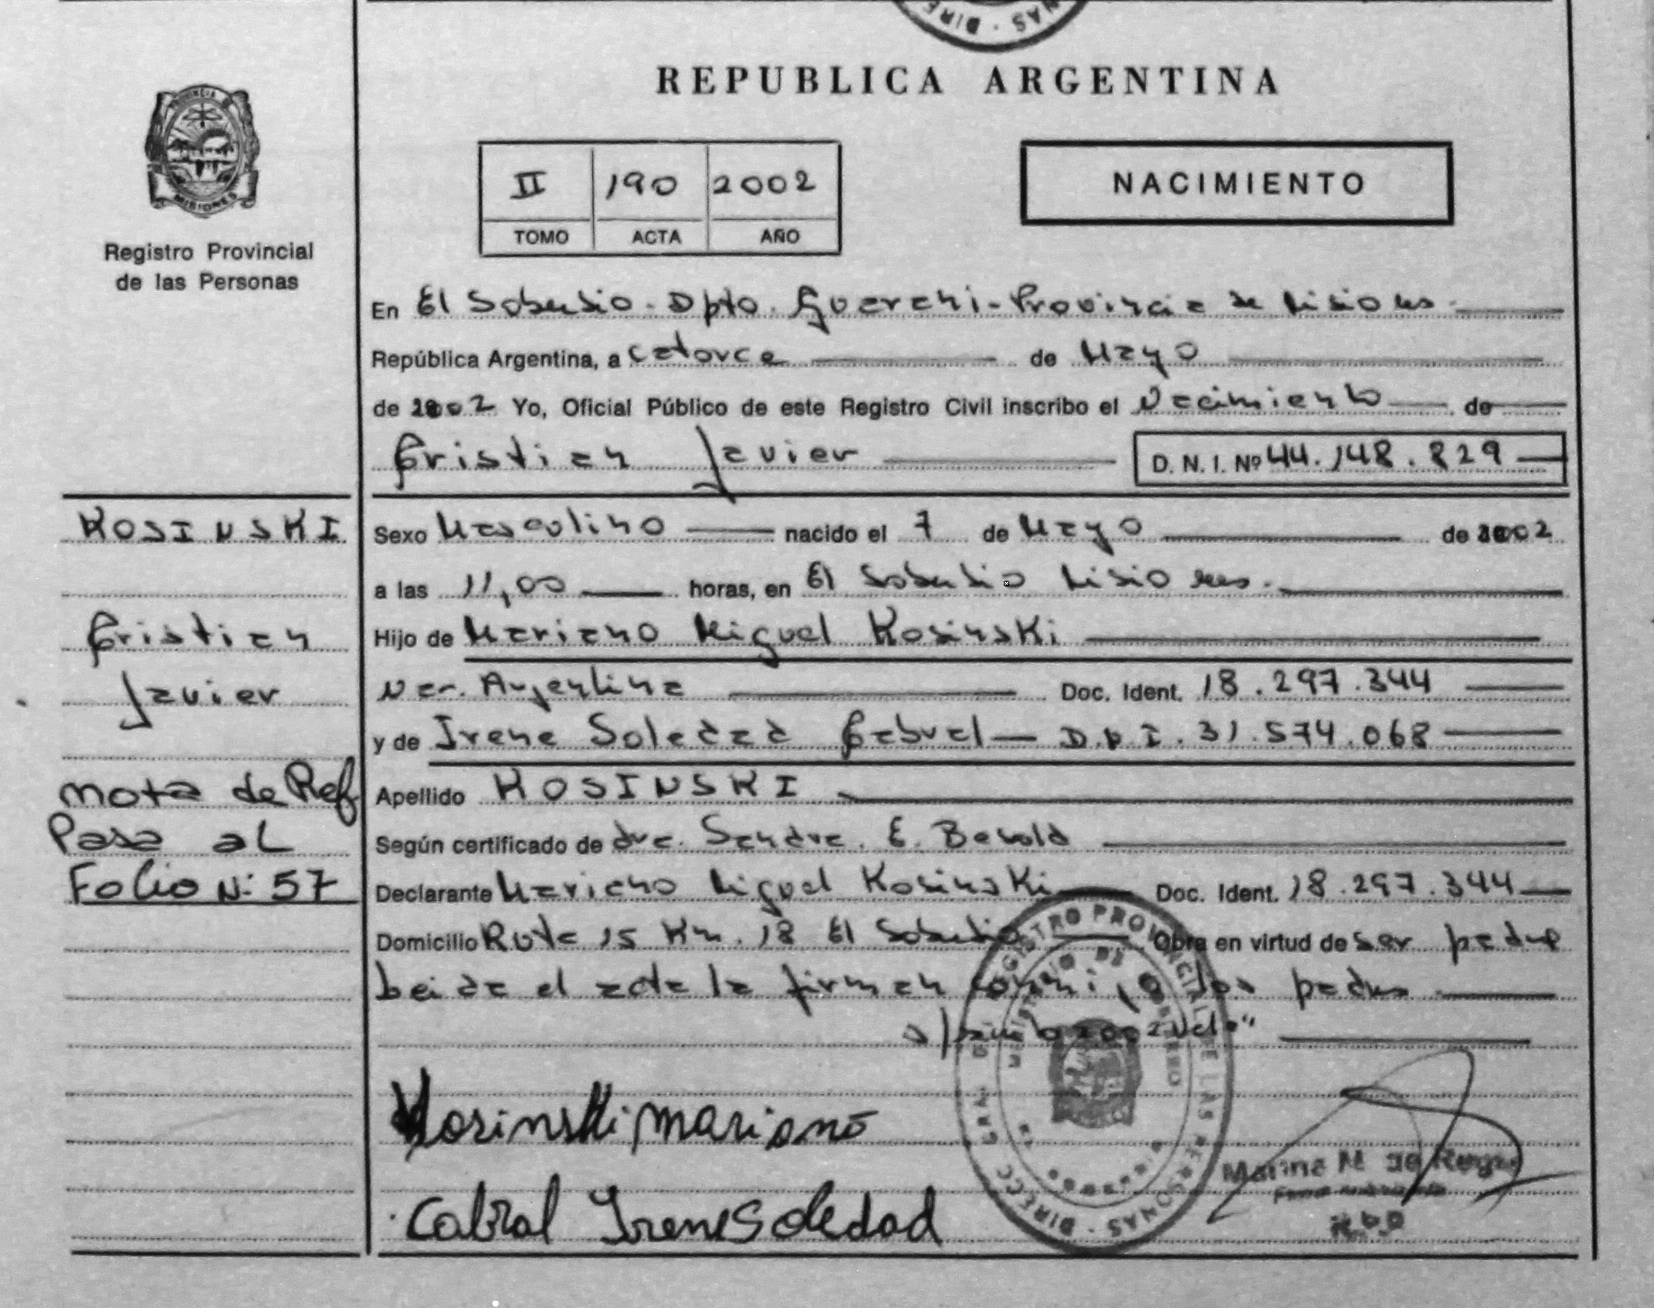 REPUBLICA ARGENTINA
II 190 2002
TOMO ACTA AÑO
NACIMIENTO
PROVINCIA DE
MISIONES
Registro Provincial
de las Personas
En El Soberbio - Dpto. Guarani - Provincia de Misiones.
República Argentina, a catorce de Mayo
de 2002 Yo, Oficial Público de este Registro Civil inscribo el Nacimiento de
Cristian Javier D. N. I. Nº 44.148.829
KOSINSKI
Cristian
Javier
Nota de Ref
Pasa al
Folio N: 57
Sexo Masculino nacido el 7 de Mayo de 2002
a las 11,00 horas, en El Soberbio Misiones.
Hijo de Mariano Miguel Kosinski
Nac. Argentina Doc. Ident. 18.297.344
y de Irene Soledad Cabral - D.N.I. 31.574.068
Apellido KOSINSKI
Según certificado de dra. Sandra. E.
Declarante Mariano Miguel Kosinski Doc. Ident. 18.297.344
Domicilio Ruta 15 Km. 18 El Soberbio Obra en virtud de ser padre
leida el acta la firman conmigo los padres
Kosinski Mariano
Cabral Irene Soledad
DIRECC. GRAL. DEL REGISTRO PROVINCIAL DE LAS PERSONAS
MINISTERIO DE GOBIERNO
MISIONES
Marina M. de